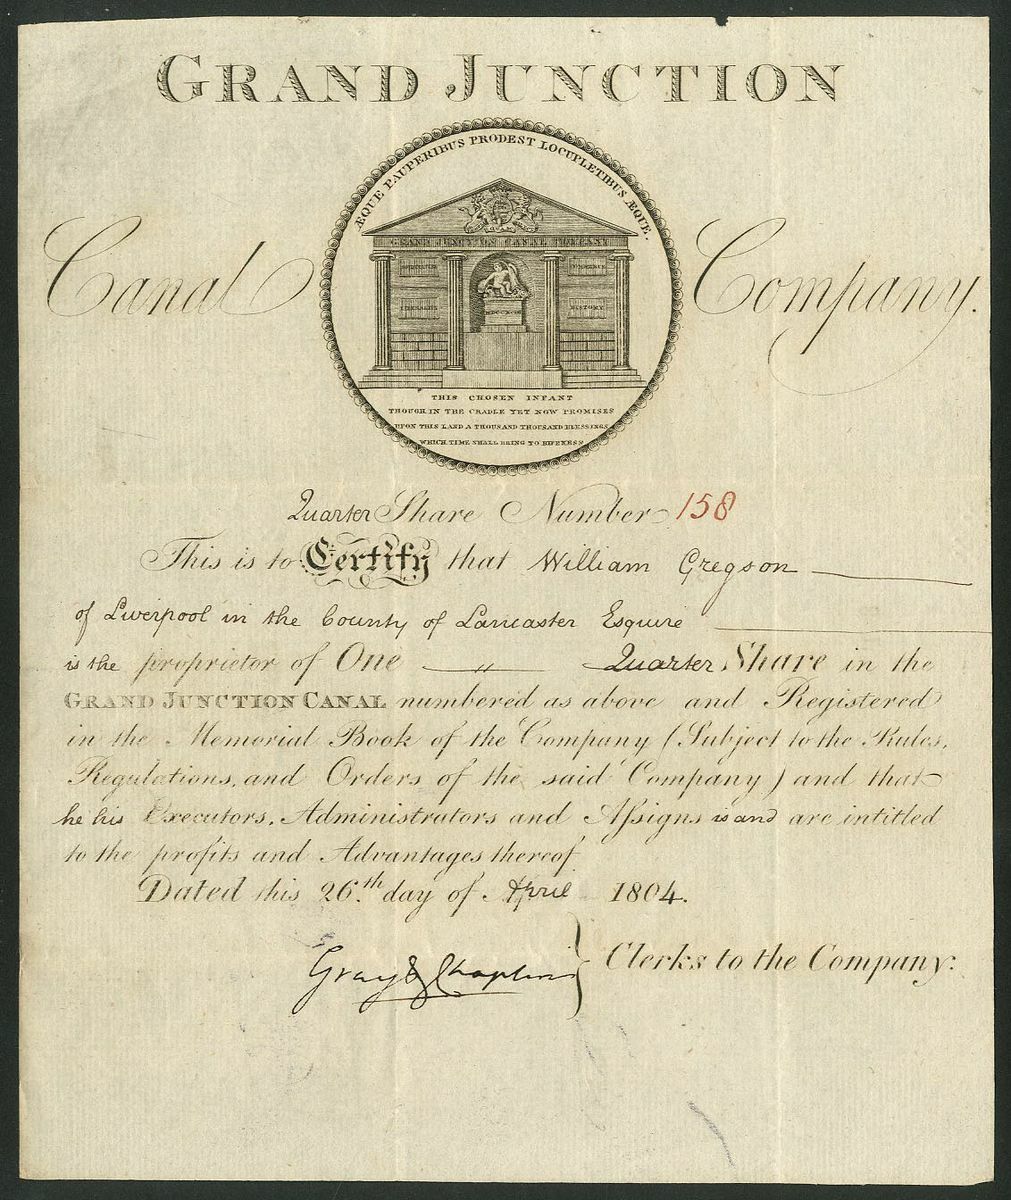 GRAND JUNCTION
ÆQUE PAUPERIBUS PRODEST LOCUPLETIBUS ÆQUE.
Canal Company.
GRAND JUNCTION CANAL COMPANY
HISTORY
THIS CHOSEN INFANT
THOUGH IN THE CRADLE YET NOW PROMISES
UPON THIS LAND A THOUSAND THOUSAND BLESSINGS
WHICH TIME SHALL BRING TO RIPENESS
Quarter Share Number 158
This is to Certify that William Gregson
of Liverpool in the County of Lancaster Esquire
is the proprietor of One " Quarter Share in the
GRAND JUNCTION CANAL numbered as above and Registered
in the Memorial Book of the Company (Subject to the Rules,
Regulations, and Orders of the said Company) and that
he his Executors, Administrators and Assigns is and are intitled
to the profits and Advantages thereof
Dated this 26.th day of April 1804.
Gray & Chaplin } Clerks to the Company.